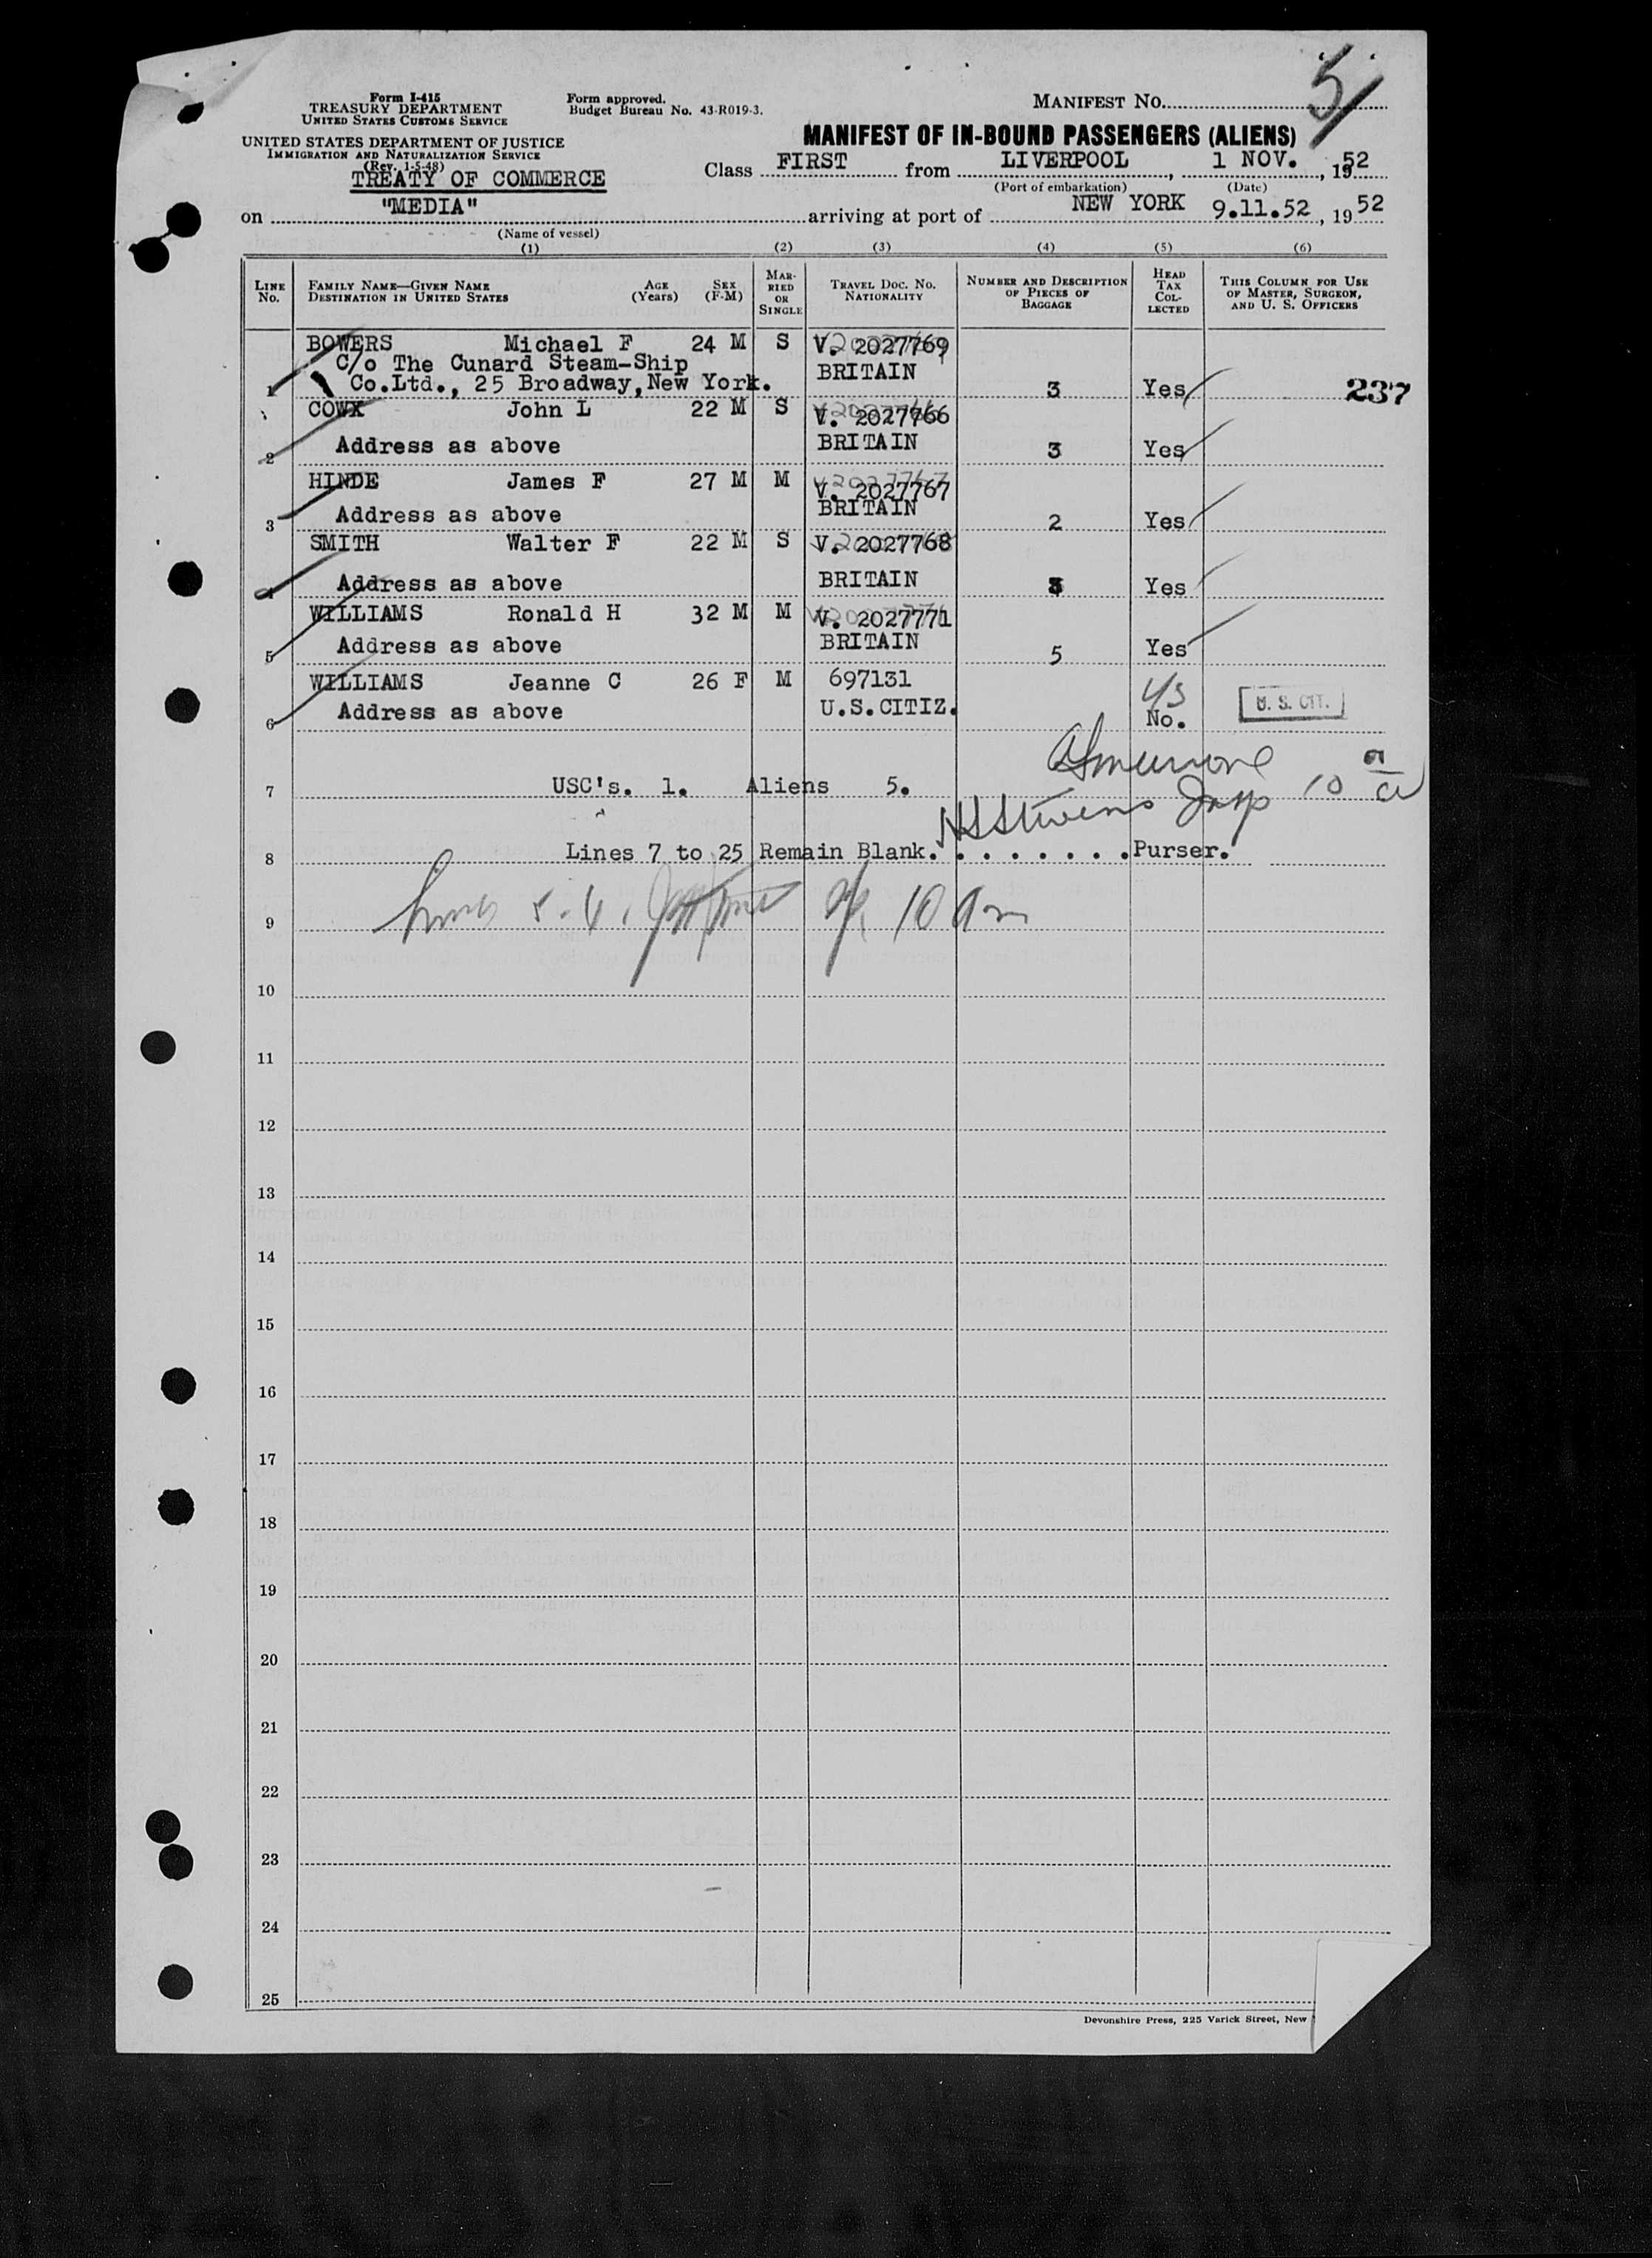 Form I-415
TREASURY DEPARTMENT
UNITED STATES CUSTOMS SERVICE
Form approved.
Budget Bureau No. 43-R019-3.
MANIFEST No. 5
UNITED STATES DEPARTMENT OF JUSTICE
IMMIGRATION AND NATURALIZATION SERVICE
(Rev. 1-5-48)
MANIFEST OF IN-BOUND PASSENGERS (ALIENS)
TREATY OF COMMERCE
Class FIRST from LIVERPOOL, 1 NOV., 1952
(Port of embarkation) (Date)
on "MEDIA" arriving at port of NEW YORK 9.11.52, 1952
(Name of vessel)
(1) (2) (3) (4) (5) (6)
LINE No. FAMILY NAME—GIVEN NAME DESTINATION IN UNITED STATES AGE (Years) SEX (F-M) MARRIED OR SINGLE TRAVEL DOC. NO. NATIONALITY NUMBER AND DESCRIPTION OF PIECES OF BAGGAGE HEAD TAX COLLECTED THIS COLUMN FOR USE OF MASTER, SURGEON, AND U. S. OFFICERS
BOWERS Michael F 24 M S V. 2027769
C/o The Cunard Steam-Ship BRITAIN
1 Co.Ltd., 25 Broadway, New York. 3 Yes 237
COWX John L 22 M S V. 2027766
2 Address as above BRITAIN 3 Yes
HINDE James F 27 M M V. 2027767
3 Address as above BRITAIN 2 Yes
SMITH Walter F 22 M S V. 2027768
4 Address as above BRITAIN Yes
WILLIAMS Ronald H 32 M M V. 2027771
5 Address as above BRITAIN 5 Yes
WILLIAMS Jeanne C 26 F M 697131
6 Address as above U.S.CITIZ. No. U. S. CIT.
7 USC's. 1. Aliens 5. 10
8 Lines 7 to 25 Remain Blank. HSStevens ........Purser.
9 10 am
10
11
12
13
14
15
16
17
18
19
20
21
22
23
24
25
Devonshire Press, 225 Varick Street, New